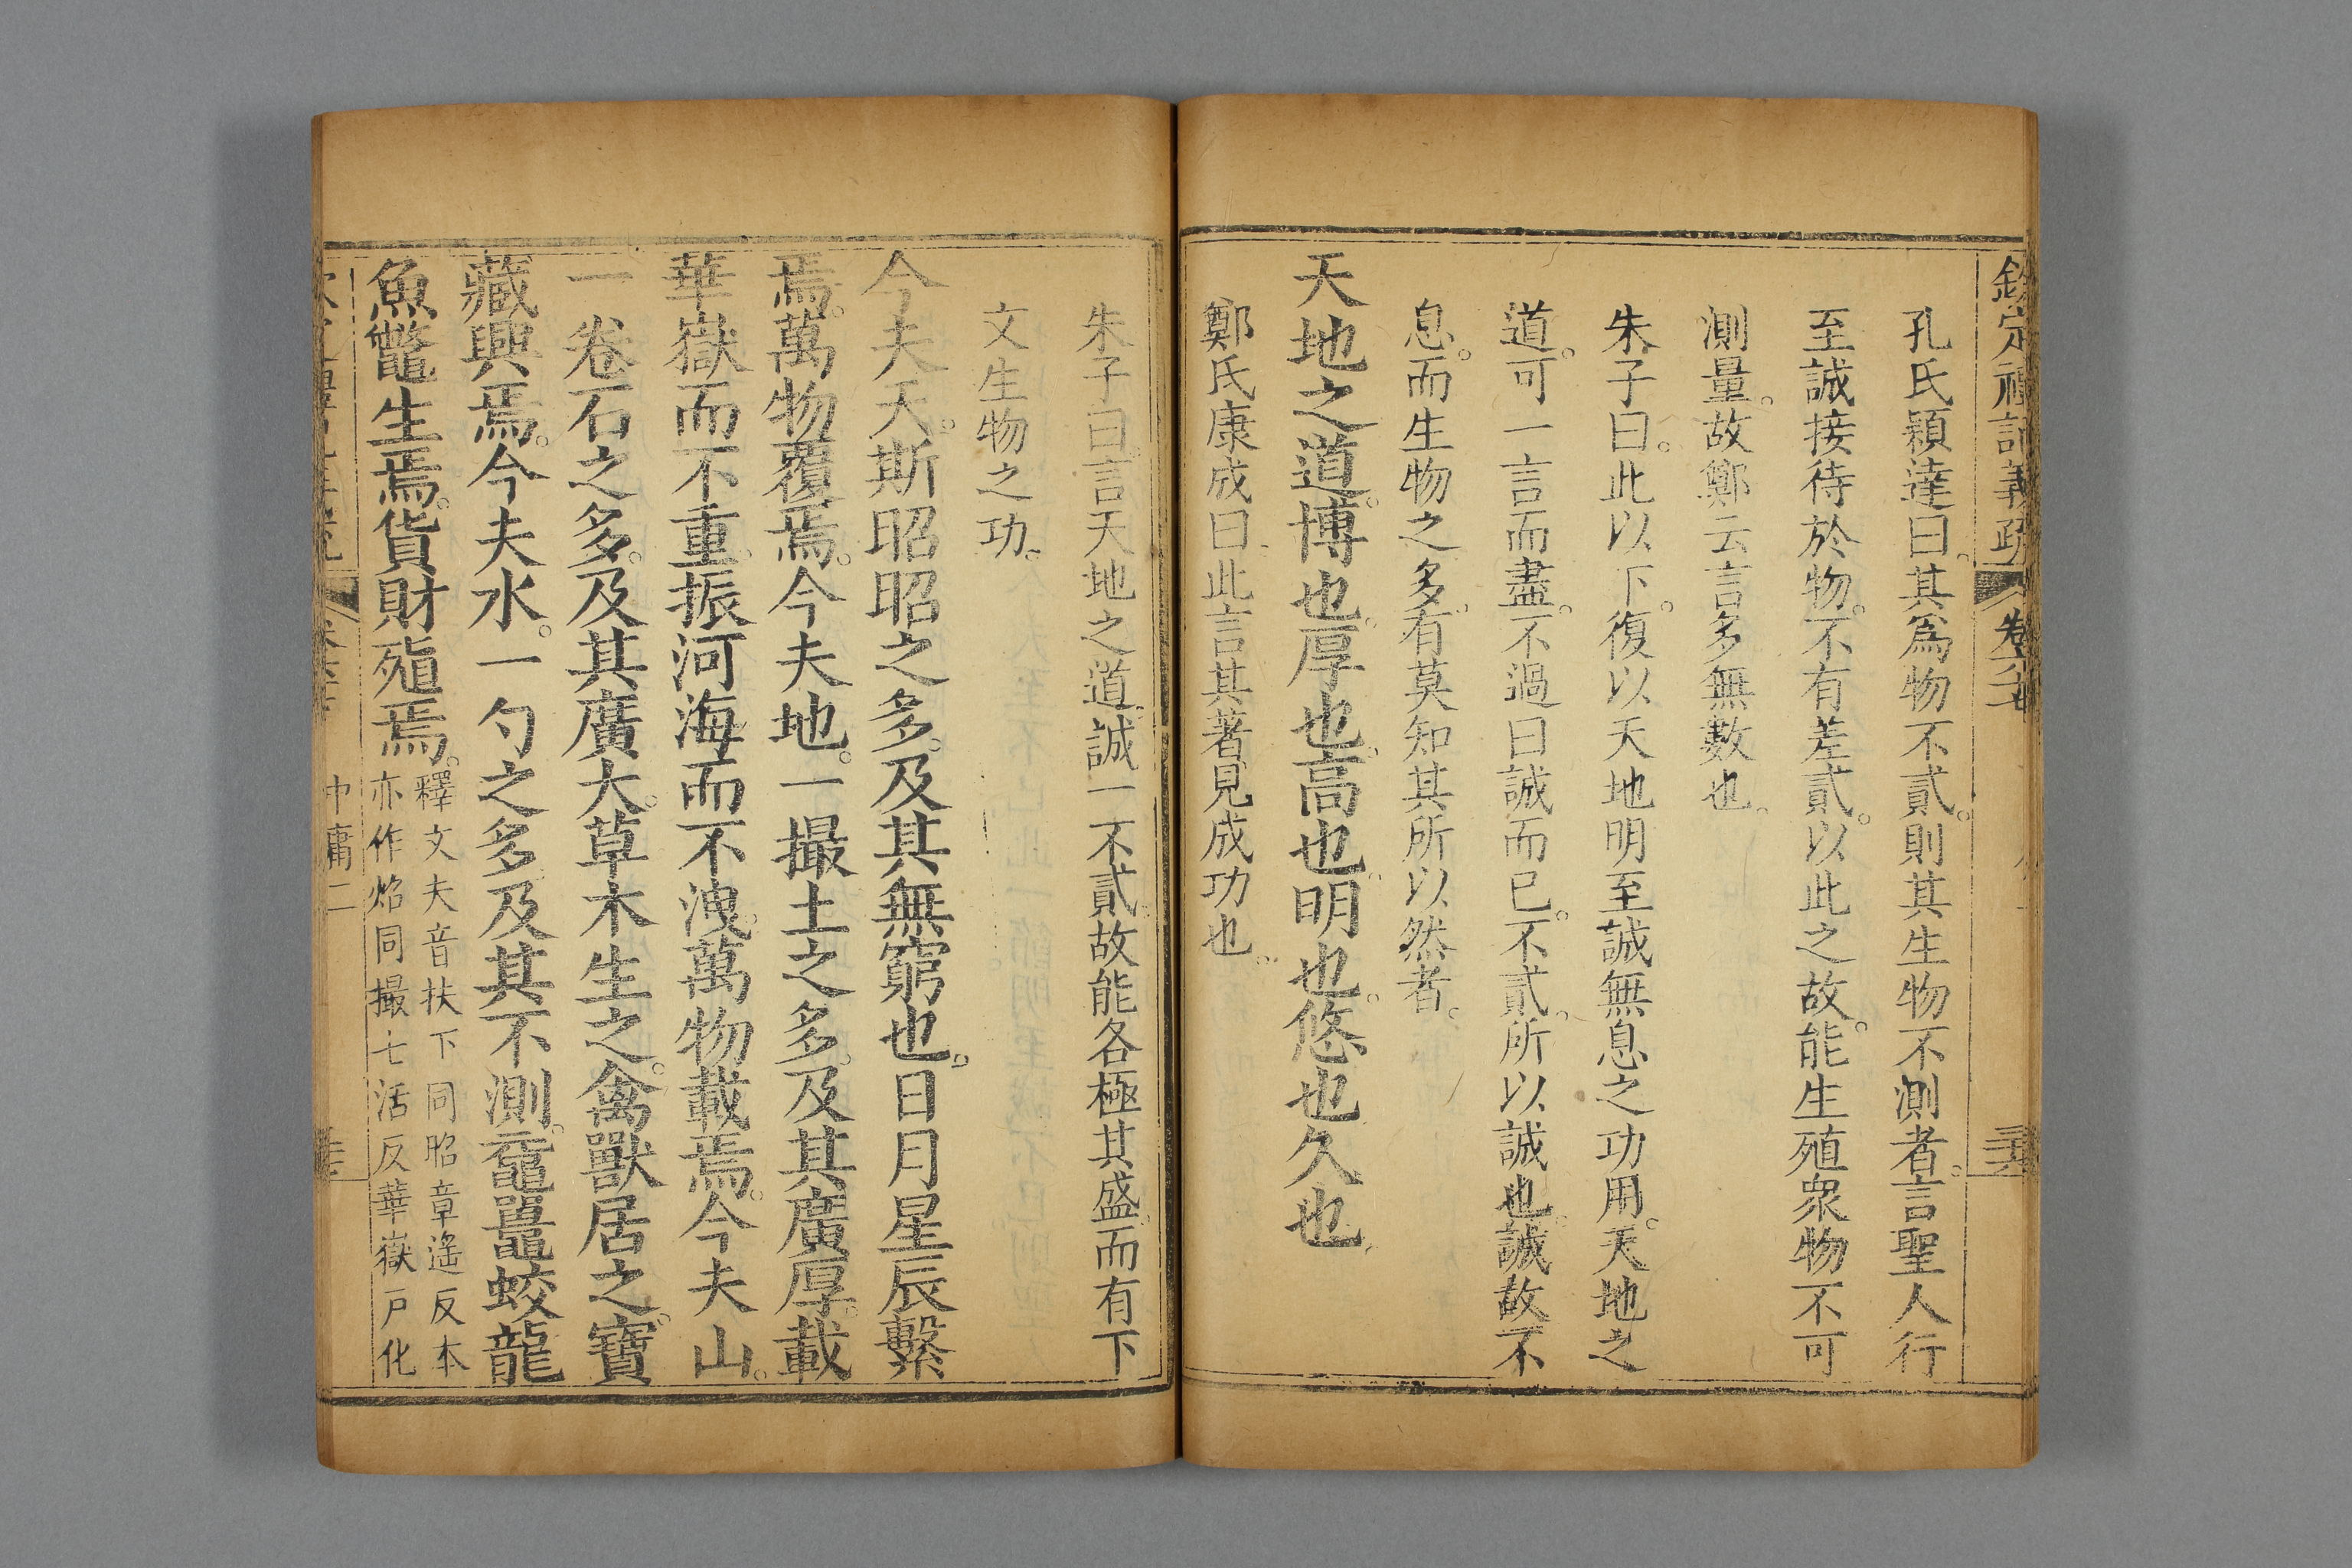 欽定禮記義疏 卷六七
孔氏穎達曰。其爲物不貳。則其生物不測者。言聖人行
至誠接待於物。不有差貳。以此之故。能生殖衆物不可
測量。故鄭云言多無數也。
朱子曰。此以下。復以天地明至誠無息之功用。天地之
道。可一言而盡。不過曰誠而已。不貳。所以誠也。誠故不
息。而生物之多。有莫知其所以然者。
天地之道。博也。厚也。高也。明也。悠也。久也
鄭氏康成曰。此言其著見成功也。
朱子曰。言天地之道。誠一不貳。故能各極其盛。而有下
文生物之功。
今夫天。斯昭昭之多。及其無窮也。日月星辰繫
焉。萬物覆焉。今夫地。一撮土之多。及其廣厚。載
華嶽而不重。振河海而不洩。萬物載焉。今夫山。
一卷石之多。及其廣大。草木生之。禽獸居之。寶
藏興焉。今夫水。一勺之多。及其不測。黿鼉蛟龍
魚鼈生焉。貨財殖焉。
釋文夫音扶下同昭章遙反本
亦作炤同撮七活反華嶽戶化
中庸二